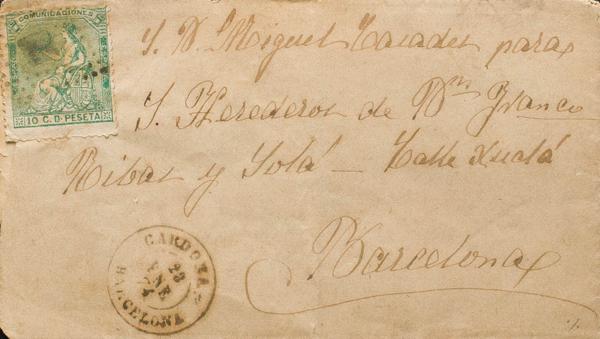 COMUNICACIONES
10 C. D. PESETA
S. D. Miguel Casades para
S. Herederos de Dn Franco
Ribas y Solá — Calle Xuclá
Barcelona
CARDONA
23
ENE
74
BARCELONA